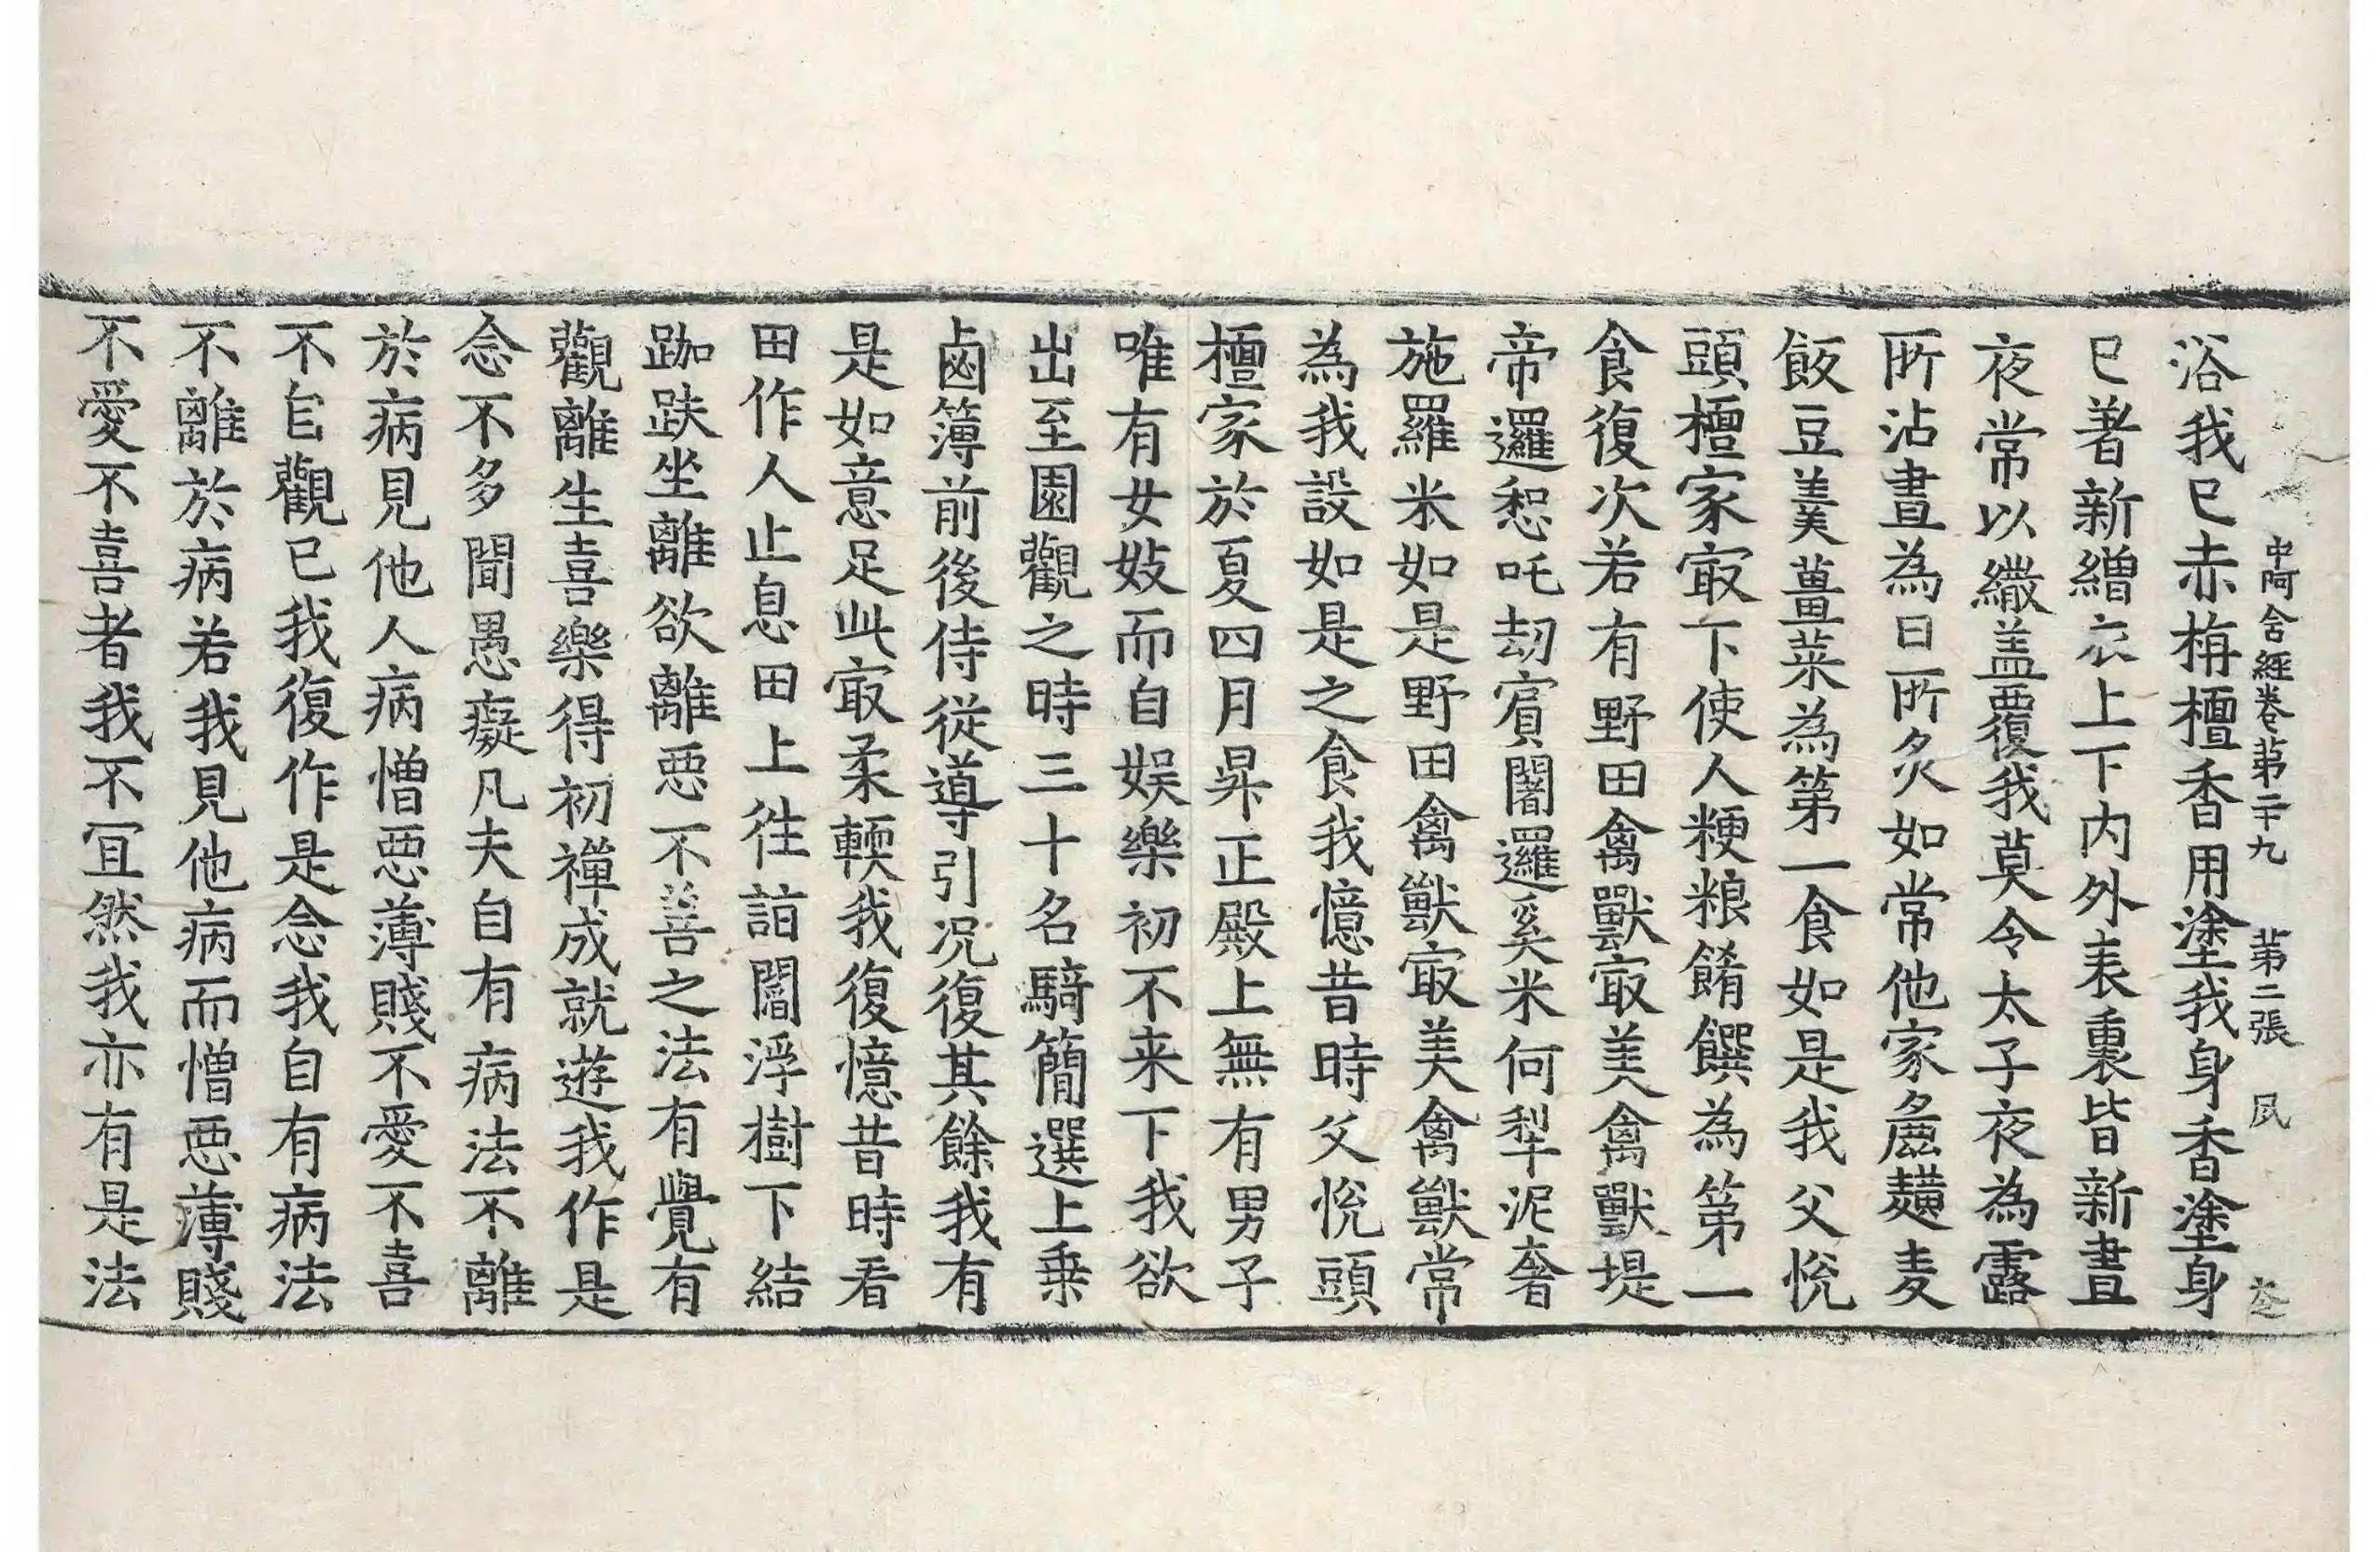 中阿含經卷第二十九　第二張　夙
浴我已赤栴檀香用塗我身香塗身
已著新繒衣上下內外表裏皆新晝
夜常以繖盖覆我莫令太子夜為露
所沾晝為日所炙如常他家麁䵃麦
飯豆羹薑菜為第一食如是我父悅
頭檀家㝡下使人粳粮餚饌為第一
食復次若有野田禽獸㝡美禽獸堤
帝邏惒吒劫賔闍邏奚米何犁泥奢
施羅米如是野田禽獸㝡美禽獸常
為我設如是之食我憶昔時父悅頭
檀家於夏四月昇正殿上無有男子
唯有女妓而自娛樂初不来下我欲
出至園觀之時三十名騎簡選上乗
鹵簿前後侍從導引况復其餘我有
是如意足此㝡柔輭我復憶昔時看
田作人止息田上徃詣閻浮樹下結
跏趺坐離欲離惡不善之法有覺有
觀離生喜樂得初禪成就遊我作是
念不多聞愚癡凡夫自有病法不離
於病見他人病憎惡薄賤不愛不喜
不自觀已我復作是念我自有病法
不離於病若我見他病而憎惡薄賤
不愛不喜者我不冝然我亦有是法